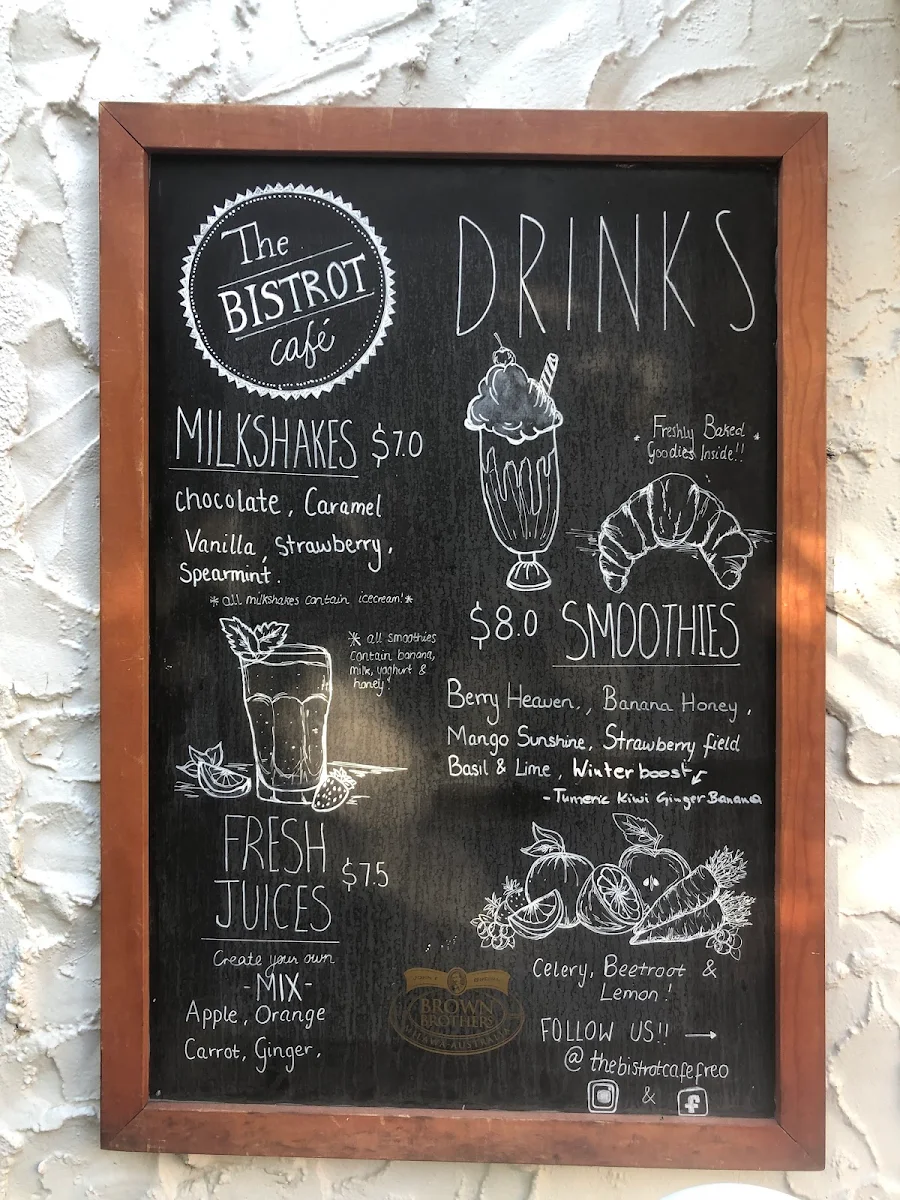 The
BISTROT
café
DRINKS
MILKSHAKES $7.0
chocolate, Caramel
Vanilla, Strawberry,
Spearmint.
* all milkshakes contain icecream! *
* Freshly Baked *
Goodies Inside!!
* all smoothies
contain banana,
milk, yoghurt &
honey!
$8.0 SMOOTHIES
Berry Heaven, Banana Honey,
Mango Sunshine, Strawberry field
Basil & Lime, Winter boost
- Tumeric Kiwi Ginger Banana
FRESH
JUICES $7.5
Create your own
- MIX -
Apple, Orange
Carrot, Ginger,
Celery, Beetroot &
Lemon!
BROWN
BROTHERS
MILAWA · AUSTRALIA
FOLLOW US!! →
@thebistrotcafefreo
&